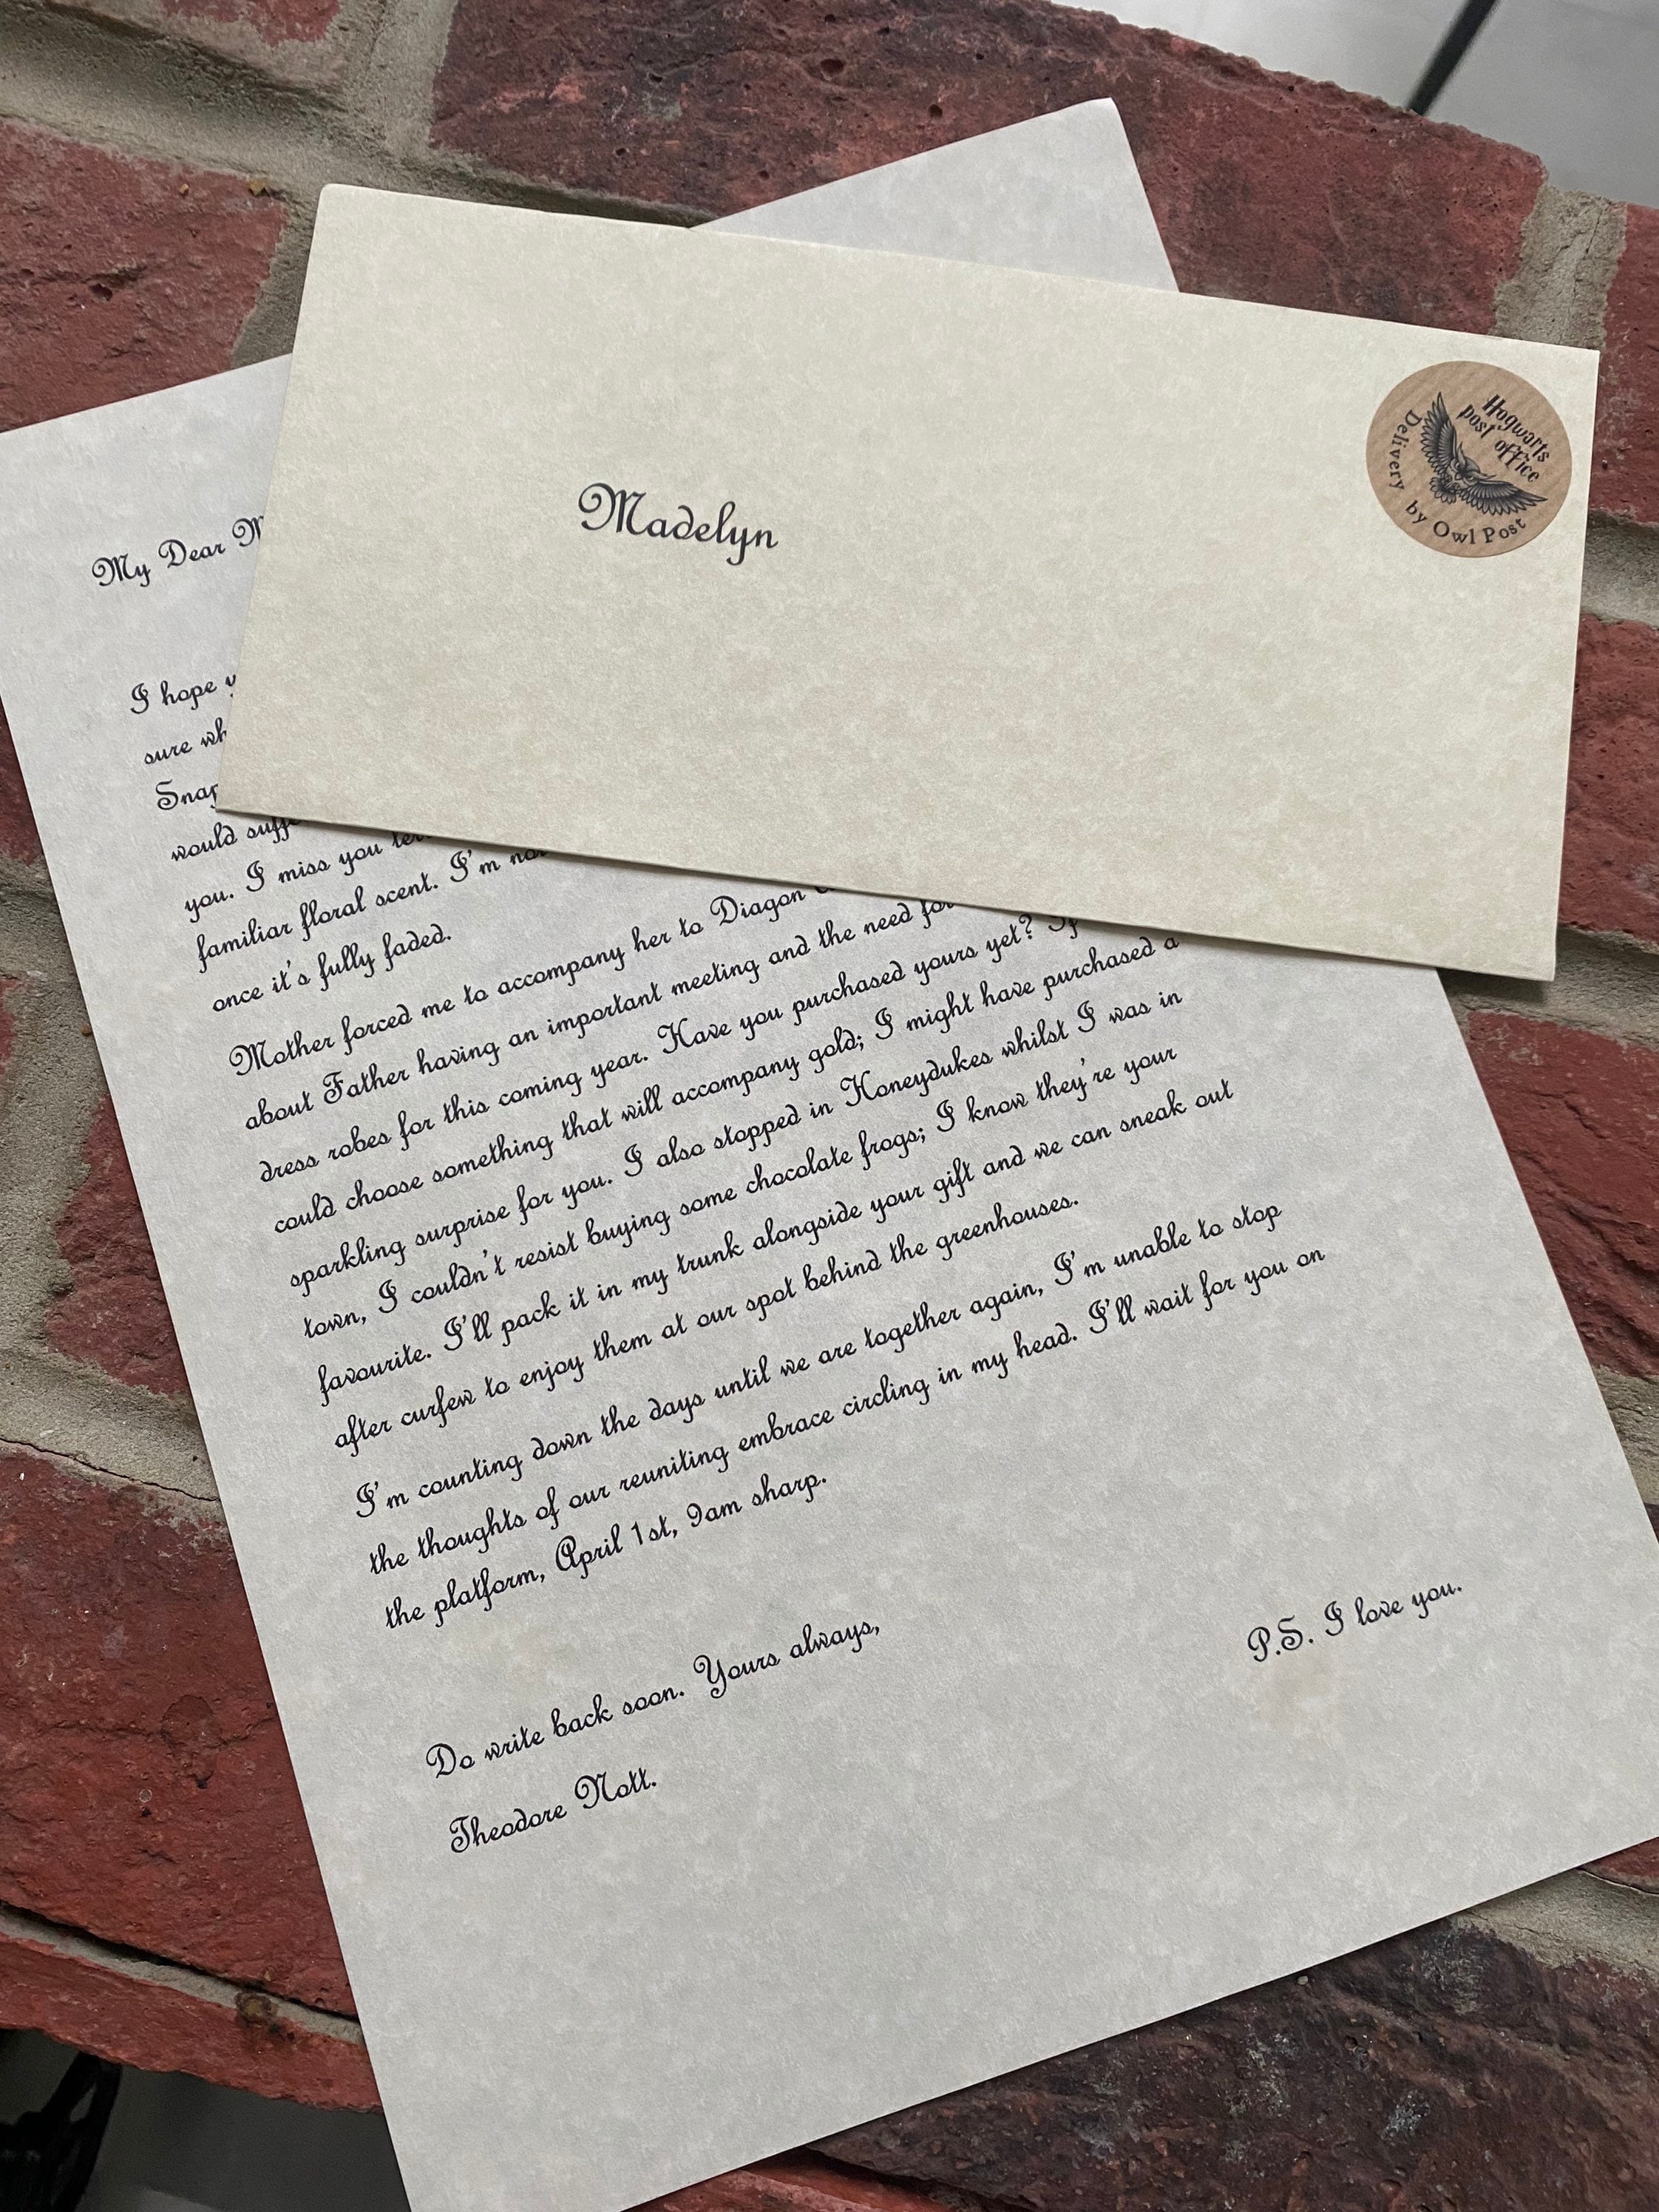 Madelyn
Hogwarts
post office
Delivery by Owl Post
My Dear
I hope
sure
would
you. I miss you
familiar floral scent. I'm
once it's fully faded.
Mother forced me to accompany her to Diagon
about Father having an important meeting and the need for
dress robes for this coming year. Have you purchased yours yet? If
could choose something that will accompany gold; I might have purchased a
sparkling surprise for you. I also stopped in Honeydukes whilst I was in
town, I couldn't resist buying some chocolate frogs; I know they're your
favourite. I'll pack it in my trunk alongside your gift and we can sneak out
after curfew to enjoy them at our spot behind the greenhouses.
I'm counting down the days until we are together again, I'm unable to stop
the thoughts of our reuniting embrace circling in my head. I'll wait for you on
the platform, April 1st, 9am sharp.
Do write back soon. Yours always,
Theodore Nott.
P.S. I love you.